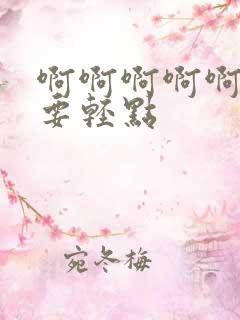 啊啊啊啊啊
要轻點
宛冬梅